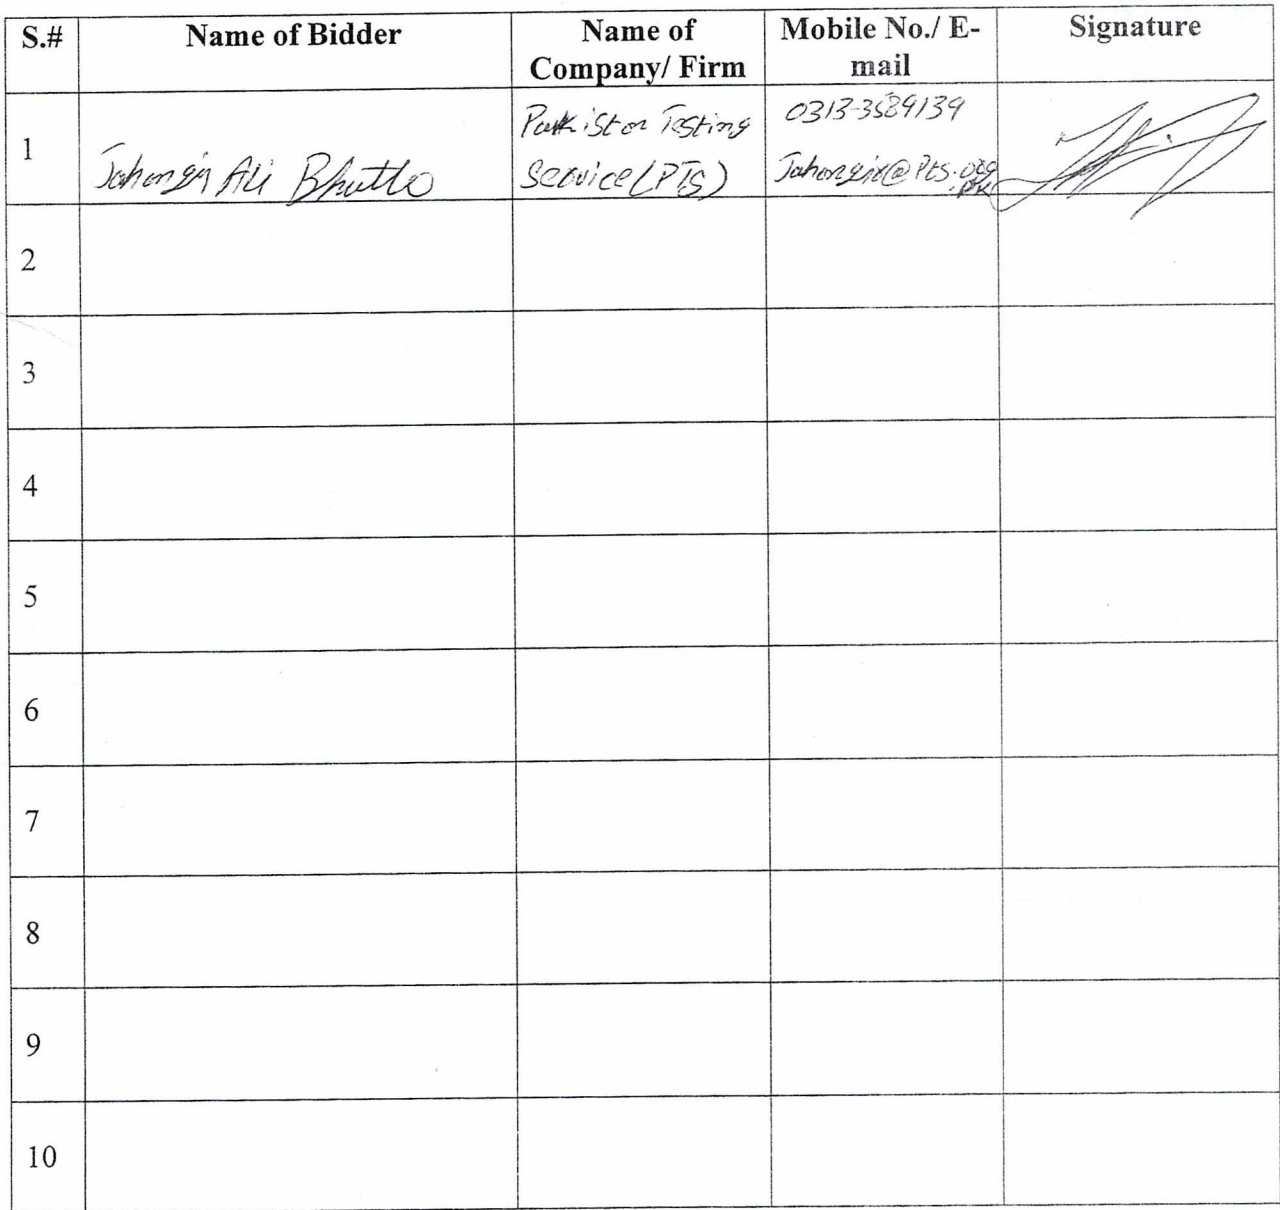 S.# Name of Bidder Name of Company/ Firm Mobile No./ E-mail Signature
1 Jahangir Ali Bhutto Pakistan Testing Service (PTS) 0313-3589139 Jahangir@pts.org.pk
2
3
4
5
6
7
8
9
10